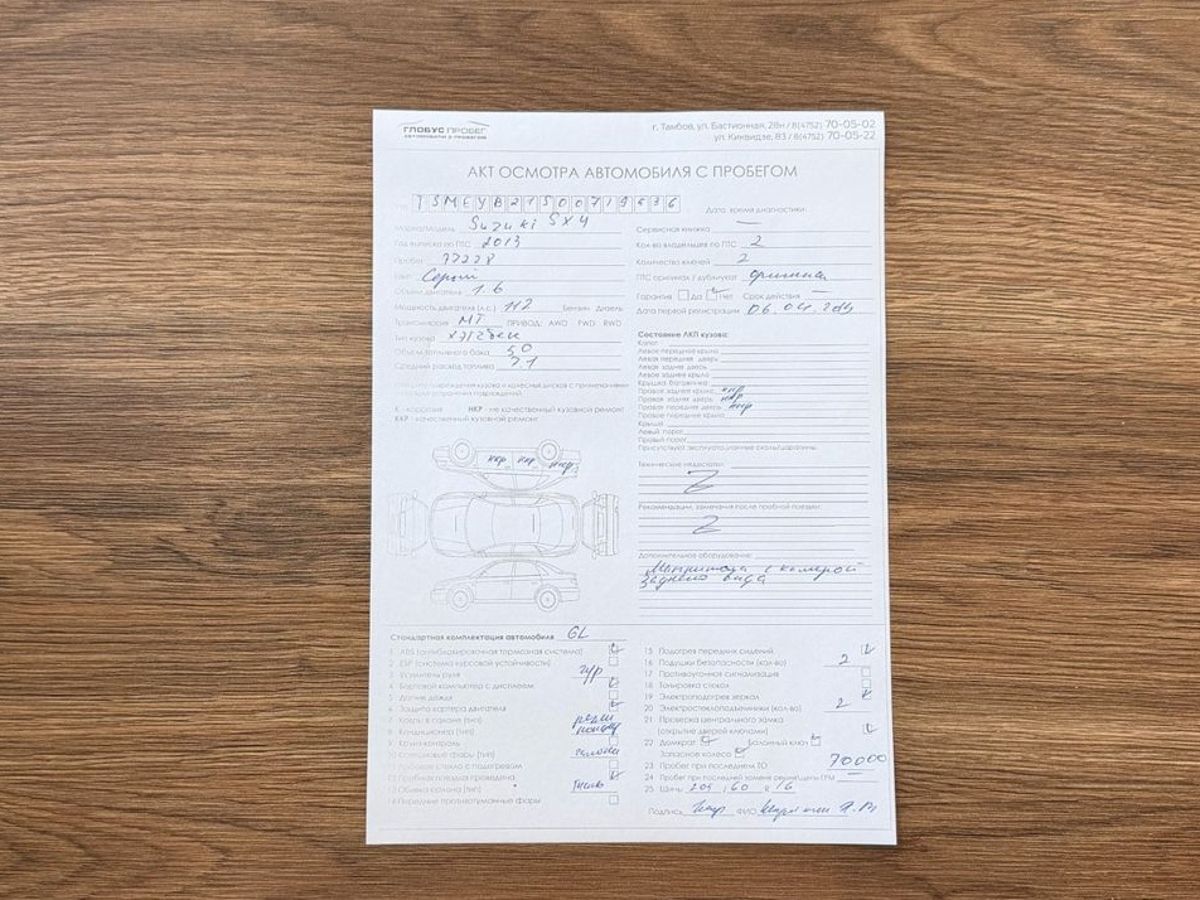 ГЛОБУС ПРОБЕГ
АВТОМОБИЛИ С ПРОБЕГОМ
г. Тамбов, ул. Бастионная, 28н / 8(4752) 70-05-02
ул. Киквидзе, 83 / 8(4752) 70-05-22
АКТ ОСМОТРА АВТОМОБИЛЯ С ПРОБЕГОМ
TSMEYB21S00719536
Дата время диагностики:
Марка/Модель Suzuki SX4
Год выпуска по ПТС 2013
Пробег 77228
Цвет Серый
Объем двигателя 1.6
Мощность двигателя (л.с.) 112 Бензин Дизель
Трансмиссия МТ ПРИВОД: AWD FWD RWD
Тип кузова хэтчбек
Объем топливного бака 50
Средний расход топлива 7.1
Сервисная книжка —
Кол-во владельцев по ПТС 2
Количество ключей 2
ПТС оригинал / дубликат оригинал
Гарантия Да Нет Срок действия —
Дата первой регистрации
повреждения кузова и колесных дисков с применением
устранения повреждений.
К - коррозия НКР - не качественный кузовной ремонт
ККР - качественный кузовной ремонт
нкр нкр нкр
Состояние ЛКП кузова:
Капот
Левое переднее крыло
Левая передняя дверь
Левая задняя дверь
Левое заднее крыло
Крышка багажника
Правое заднее крыло нкр
Правая задняя дверь нкр
Правая передняя дверь нкр
Правое переднее крыло
Крыша
Левый порог
Правый порог
Присутствуют эксплуатационные сколы/царапины.
Технические недостатки:
Z
Рекомендации, замечания после пробной поездки:
Z
Дополнительное оборудование:
с камерой
Заднего вида
Стандартная комплектация автомобиля GL
1 ABS (антиблокировочная тормозная система)
2 ESP (система курсовой устойчивости)
3 Усилитель руля гур
4 Бортовой компьютер с дисплеем
5 Датчик дождя
6 Защита картера двигателя
7 Ковры в салоне (тип) резин
8 Кондиционер (тип) кондиц
9 Круиз-контроль
10 фары (тип) галоген
11 Лобовое стекло с подогревом
12 Пробная поездка проведена
13 Обивка салона (тип) Ткань
14 Передние противотуманные фары
15 Подогрев передних сидений
16 Подушки безопасности (кол-во) 2
17 Противоугонная сигнализация
18 Тонировка стекол
19 Электроподогрев зеркал
20 Электростеклоподъемники (кол-во) 2
21 Проверка центрального замка
(открытие дверей ключами)
22 Домкрат Балонный ключ
Запасное колесо
23 Пробег при последнем ТО 70000
24 Пробег при последней замене ремня/цепи ГРМ —
25 Шины 205 / 60 R 16
Подпись ФИО